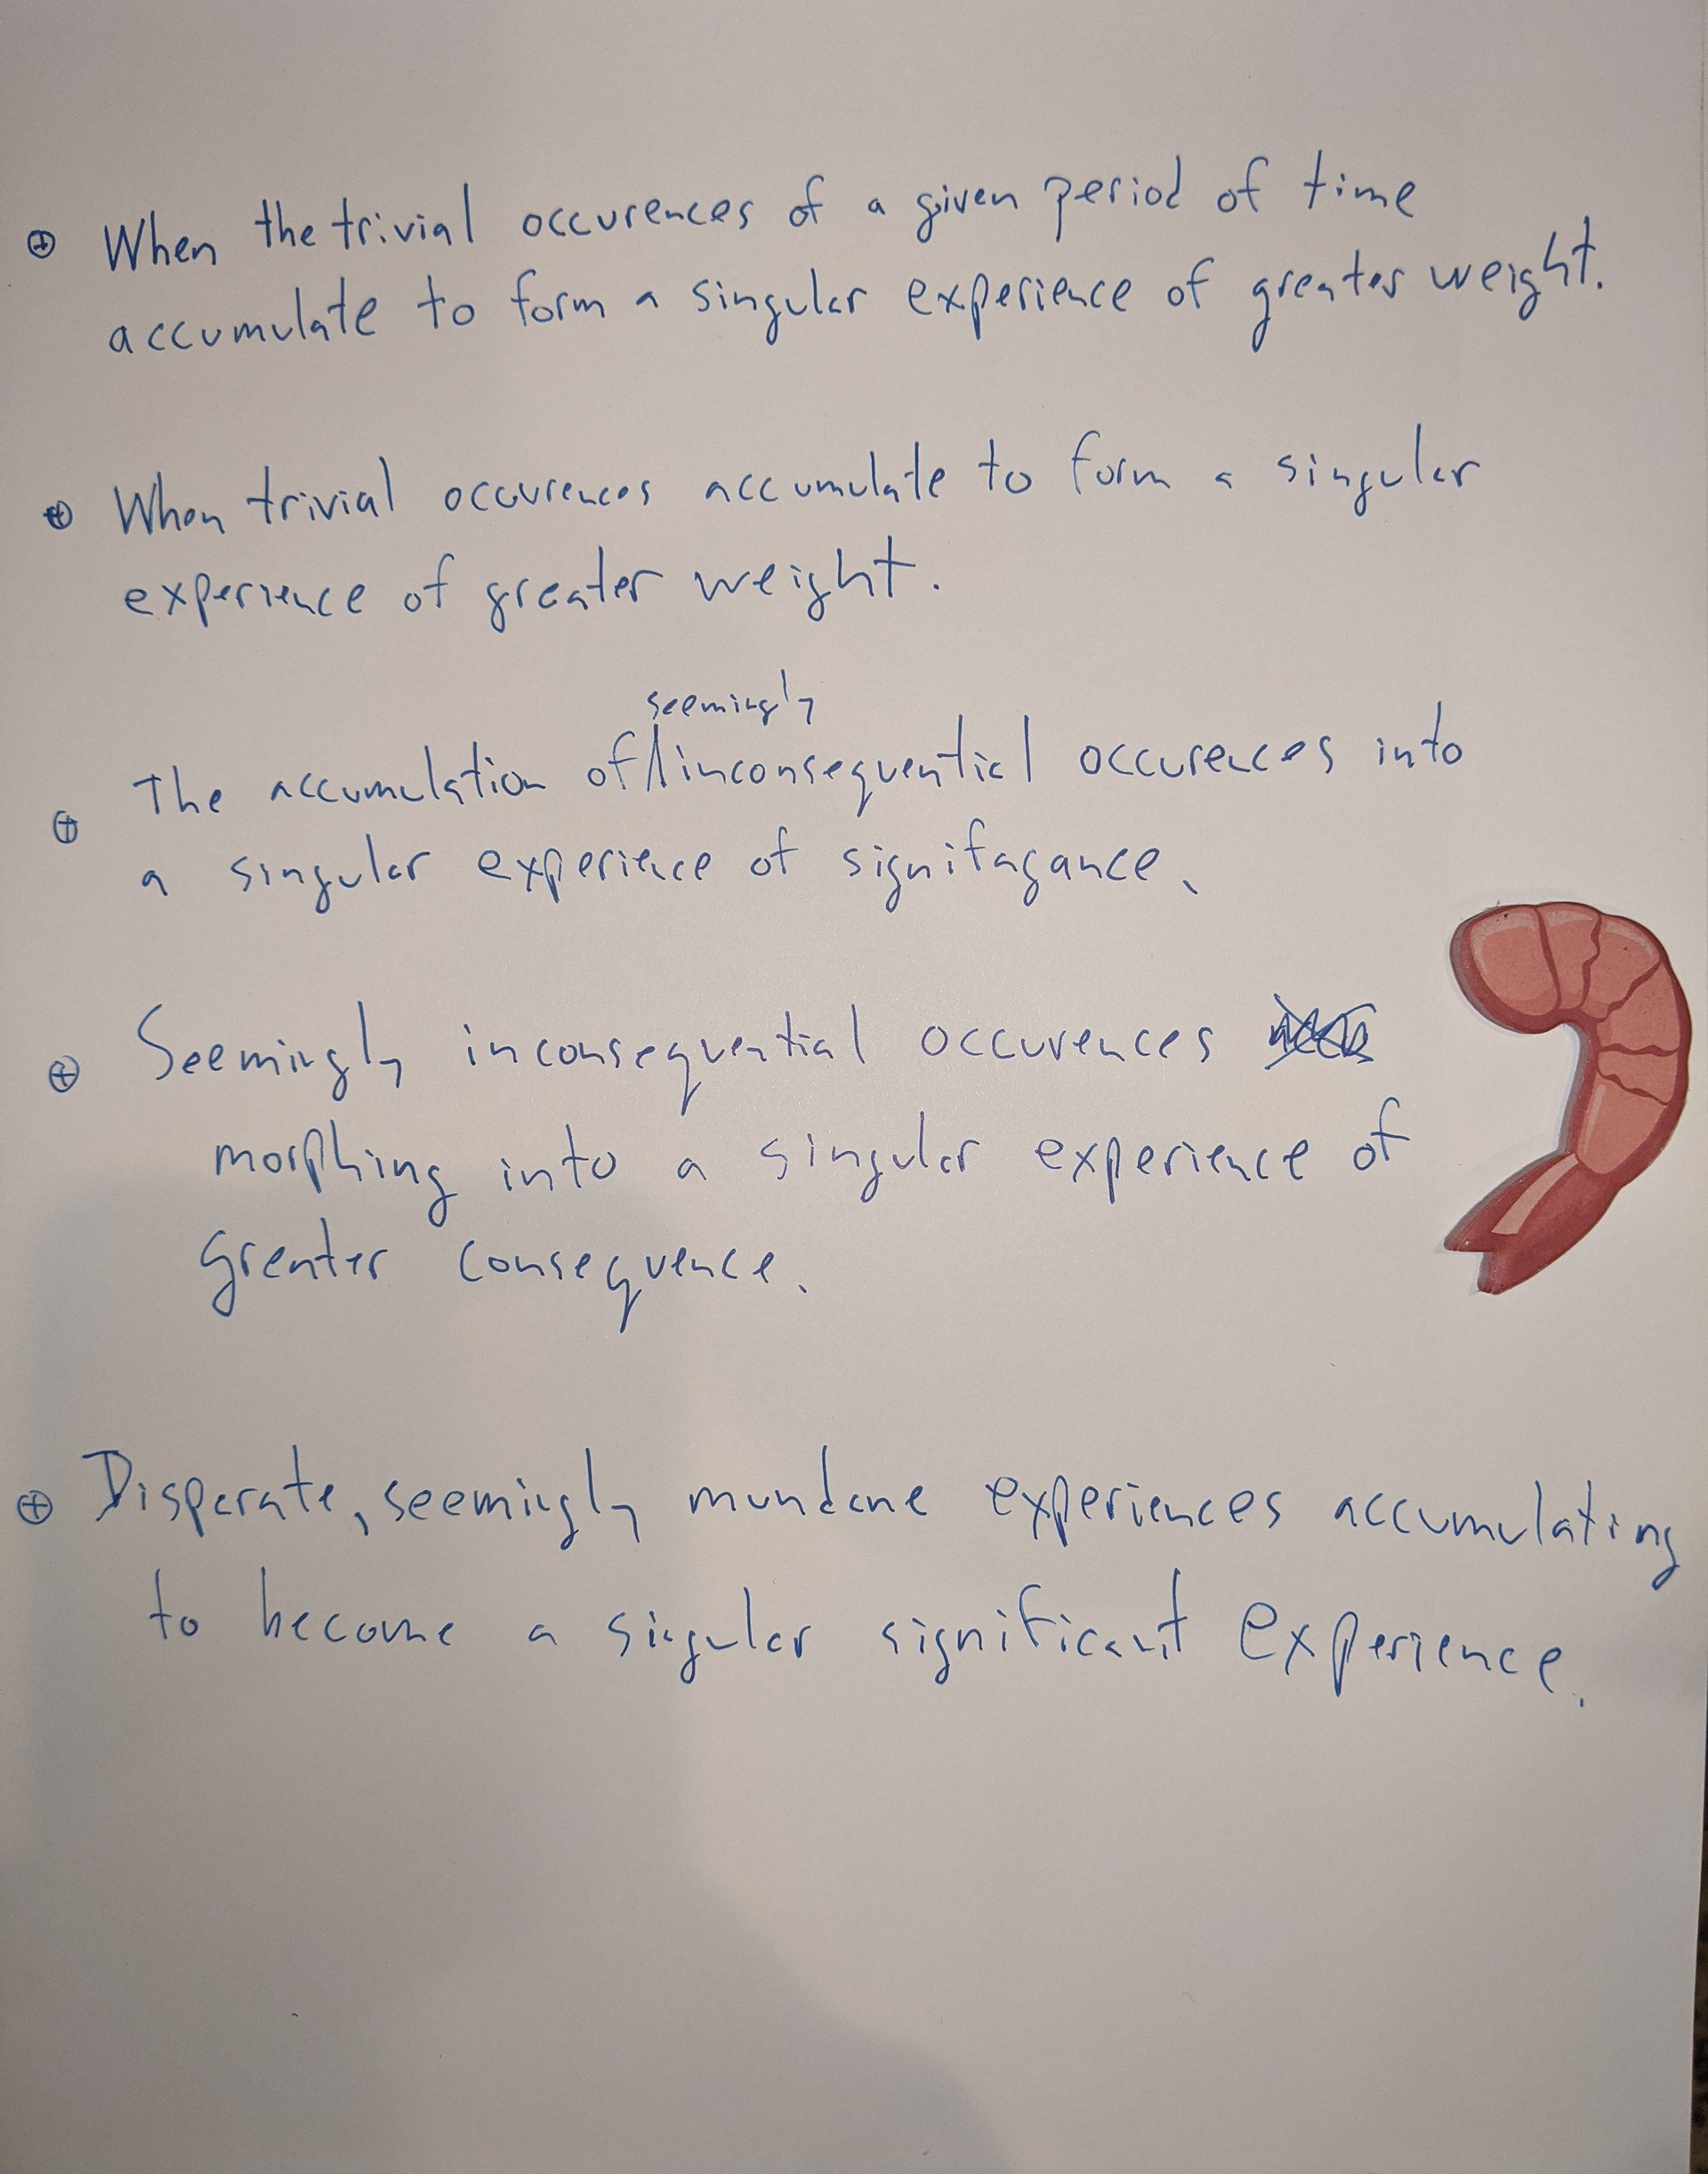 When the trivial occurences of a given period of time
accumulate to form a singular experience of greater weight.
When trivial occurences accumulate to form a singular
experience of greater weight.
seemingly
The accumulation of inconsequential occurences into
a singular experience of signifagance.
Seemingly inconsequential occurences
morphing into a singular experience of
greater consequence.
Disparate, seemingly mundane experiences accumulating
to become a singular significant experience.